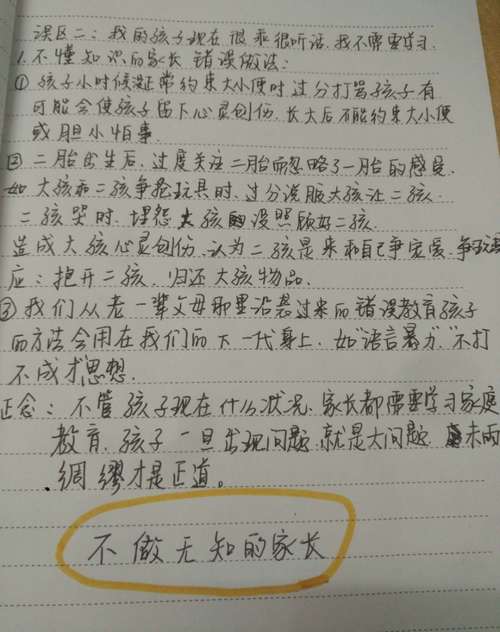 误区二：我的孩子现在很乖很听话，我不需要学习.
1.不懂知识的家长 错误做法：
① 孩子小时候没正常约束大小便时过分打骂孩子有
可能会使孩子留下心灵创伤、长大后不能约束大小便
或胆小怕事.
② 二胎出生后、过度关注二胎而忽略了一胎的感受.
如 大孩和二孩争抢玩具时、过分说服大孩让二孩.
二孩哭时、埋怨大孩没照顾好二孩
造成大孩心灵创伤、认为二孩是来和自己争宠爱、争玩具
应：抱开二孩、归还大孩物品.
③ 我们从老一辈父母那里沿袭过来的错误教育孩子
的方法会用在我们的下一代身上、如"语言暴力""不打
不成才思想.
正念：不管孩子现在什么状况、家长都需要学习家庭
教育、孩子一旦出现问题、就是大问题、未雨
绸缪才是正道。
不做无知的家长